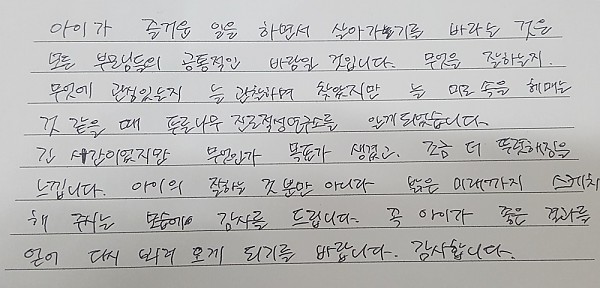 아이가 즐거운 일을 하면서 살아가기를 바라는 것은
모든 부모님들의 공통적인 바람일 것입니다. 무엇을 잘하는지.
무엇에 관심있는지 늘 관찰하며 찾았지만 늘 미로 속을 헤매는
것 같을 때 푸른나무 진로적성연구소를 알게되었습니다.
긴 시간이였지만 무언가 목표가 생겼고. 조금 더 뚜렷해짐을
느낍니다. 아이의 잘하는 것 뿐만 아니라 밝은 미래까지 스케치
해 주시는 모습에 감사를 드립니다. 꼭 아이가 좋은 결과를
얻어 다시 뵈러 오게 되기를 바랍니다. 감사합니다.